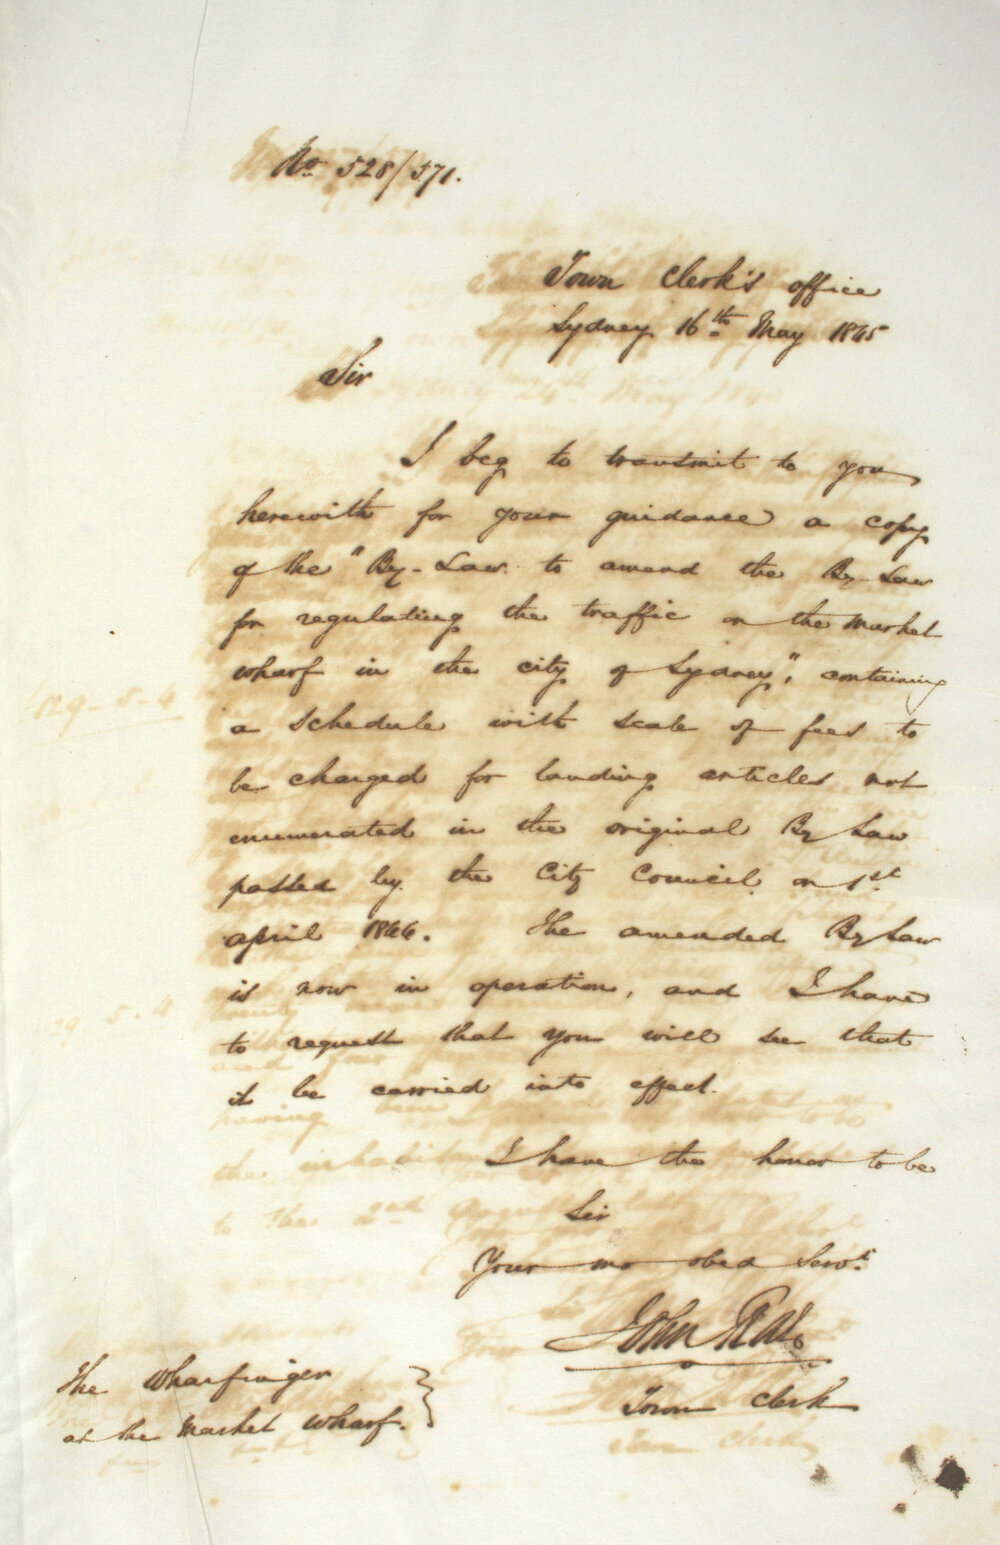 No. 528/571.
Town Clerk's office
Sydney 16th May 1845
Sir
I beg to transmit to you
herewith for your guidance a copy
of the "By-Law to amend the By-Law
for regulating the traffic on the Market
Wharf in the city of Sydney", containing
a schedule with scale of fees to
be charged for landing articles not
enumerated in the original By Law
passed by the City Council on 1st
april 1844. The amended By Law
is now in operation, and I have
to request that you will see that
it be carried into effect.
I have the honor to be
Sir
Your mo obed Servt.
John
Town Clerk
The Wharfinger
at the Market Wharf.